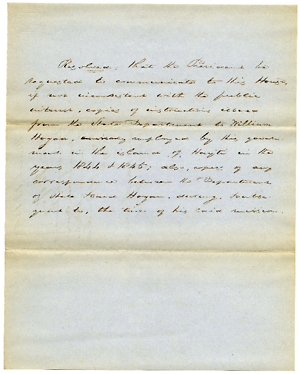 Resolved, That the President be
requested to communicate to this House,
if not inconsistent with the public
interest, copies of instructions issued
from the State Department to William
Hogan, employed by the govern
ment in the island of Hayti in the
years 1844 & 1845; also, copies of any
correspondence between the Department
of State & said Hogan, during, & subse
quent to, the time of his said mission.